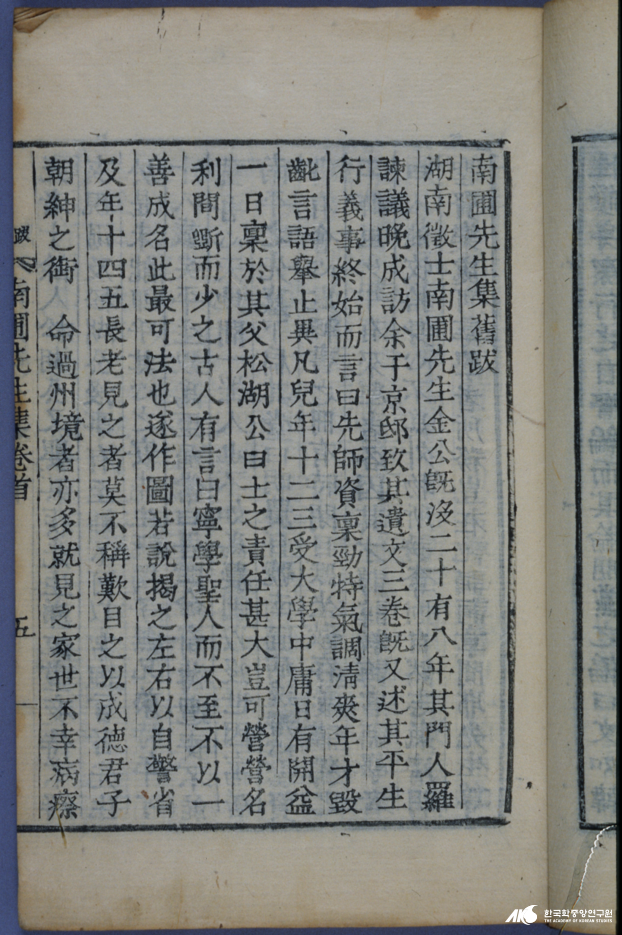 南圃先生集舊跋
湖南徵士南圃先生金公旣沒二十有八年其門人羅
諫議晩成訪余于京邸致其遺文三卷旣又述其平生
行義事終始而言曰先師資稟勁特氣調淸爽年才毀
齔言語擧止異凡兒年十二三受大學中庸日有開益
一日稟於其父松湖公曰士之責任甚大豈可營營名
利間斷而少之古人有言曰寧學聖人而不至不以一
善成名此最可法也遂作圖若說揭之左右以自警省
及年十四五長老見之者莫不稱歎目之以成德君子
朝紳之銜 命過州境者亦多就見之家世不幸病瘵
跋 南圃先生集卷首 五
한국학중앙연구원
THE ACADEMY OF KOREAN STUDIES